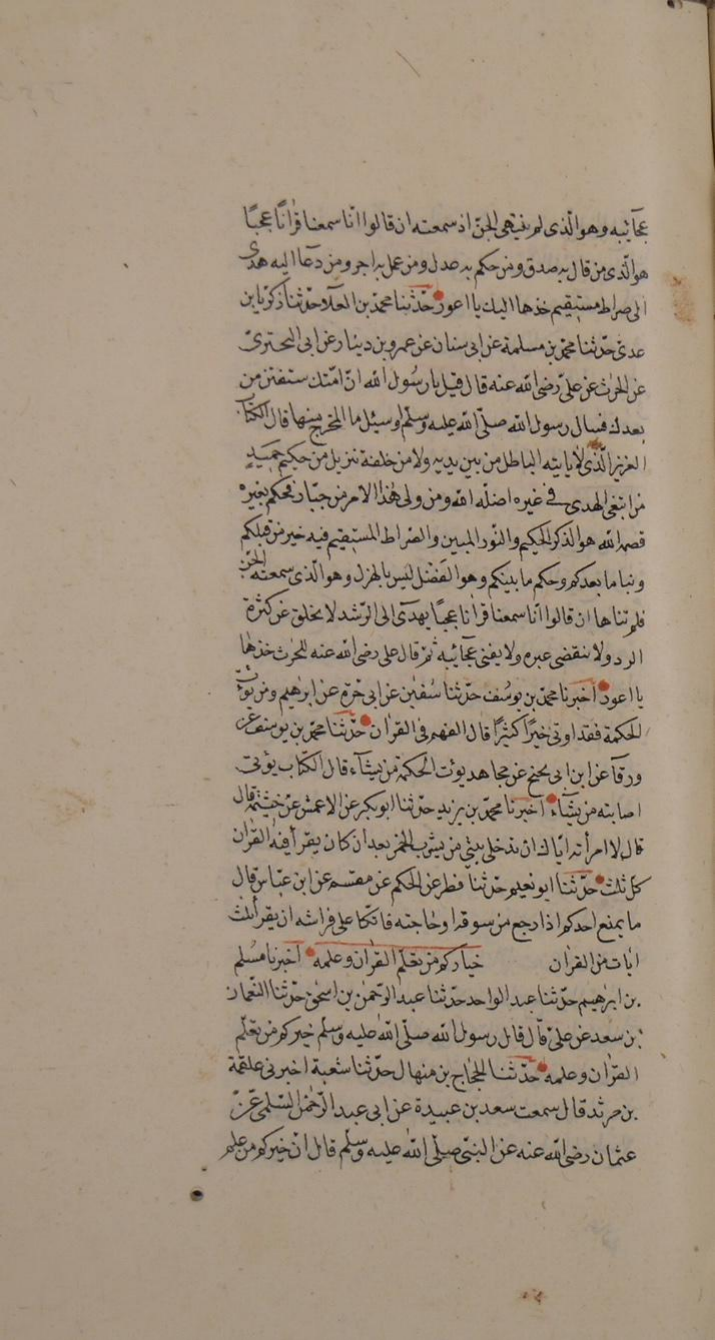 عجآئبه وهو الّذى لم ينته الجنّ اذ سمعته ان قالوا انّا سمعنا قراٰنًا عجبًا
هو الّذى من قال به صدق ومن حكم به عدل ومن عمل به اجر ومن دعآ اليه هدى
الى صراط مستقيم خذها اليك يا اعور حدّثنا محمّد بن العلآء حدّثنا زكريّا بن
عدىّ حدّثنا محمّد بن مسلمة عن ابى سنان عن عمرو بن دينار عن ابى البخترىّ
عن الحٰرث عن علىّ رضى الله عنه قال قيل يا رسُول الله انّ امّتك ستفتتن من
بعدك فسال رسول الله صلّى الله عليه وسلّم او سئل ما المخرج منها قال الكتٰب
العزيز الّذى لا ياتيه الباطل من بين يديه ولا من خلفه تنزيل من حكيم حميدٍ
من ابتغى الهدى فى غيره اضلّه الله ومن ولى هٰذا الامر من جبّار فحكم بغيره
قصمه الله هو الذكر الحكيم والنّور المبين والصّراط المستقيم فيه خبر من قبلكم
ونبا ما بعدكم وحكم ما بينكم وهو الفَصْل ليس بالهزل وهو الّذى سمعته الجنّ
فلم تناها ان قالوا انّا سمعنا قراٰنا عجبًا يهدى الى الرّشد لا يخلق عن كثرة
الرد ولا تنقضى عبره ولا يفنى عجآئبه ثمّ قال على رضى الله عنه للحٰرث خذها
يا اعور اخبرنا محمّد بن يوسُف حدّثنا سُفيٰن عن ابى حمزة عن ابرٰهيم ومن يؤت
الحكمة فقد اوتى خيرًا كثيرًا قال الفهم فى القراٰن حدّثنا محمّد بن يوسف عن
ورقآء عن ابن ابى نجيح عن مجاهد يوٰت الحكمة من يشآء قال الكتٰب يؤتى
اصابته من يشآء اخبرنا محمّد بن يزيد حدّثنا ابو بكر عن الاعمش عن خيثمة قال
قال لامرأته ايّاك ان تدخلى بيتى من يشرب الخمر بعد ان كان يقرأ فيه القراٰن
كل ثلث حدّثنا ابو نعيم حدّثنا فطر عن الحكم عن مقسم عن ابن عبّاس قال
ما يمنع احدكم اذا رجع من سوقه او حاجته فاتّكا على فراشه ان يقرأ ثلث
اٰيات من القراٰن خياركم من تعلّم القراٰن وعلمه اخبرنا مسلم
بن ابرٰهيم حدّثنا عبد الواحد حدّثنا عبد الرّحمٰن بن اسحٰق حدّثنا النّعمان
بن سعد عن علىّ قال قال رسول الله صلّى الله عليه وسلّم خيركم من تعلّم
القراٰن وعلمه حدّثنا الحجّاج بن منهال حدّثنا شعبة اخبرنى علقمة
بن مرثد قال سمعت سعد بن عبيدة عن ابى عبد الرّحمٰن السّلمى عن
عثمان رضى الله عنه عن النبّى صلّى الله عليه وسلّم قال انّ خيركم من علم